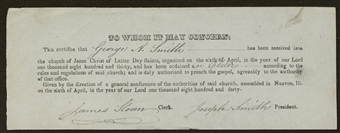 TO WHOM IT MAY CONCERN:
This certifies that George A. Smith has been received into
the church of Jesus Christ of Latter Day Saints, organized on the sixth of April, in the year of our Lord
one thousand eight hundred and thirty, and has been ordained an Elder according to the
rules and regulations of said church; and is duly authorized to preach the gospel, agreeably to the authority
of that office.
Given by the direction of a general conference of the authorities of said church, assembled in Nauvoo, Ill.
on the sixth of April, in the year of our Lord one thousand eight hundred and forty.
James Sloan Clerk. Joseph Smith President.